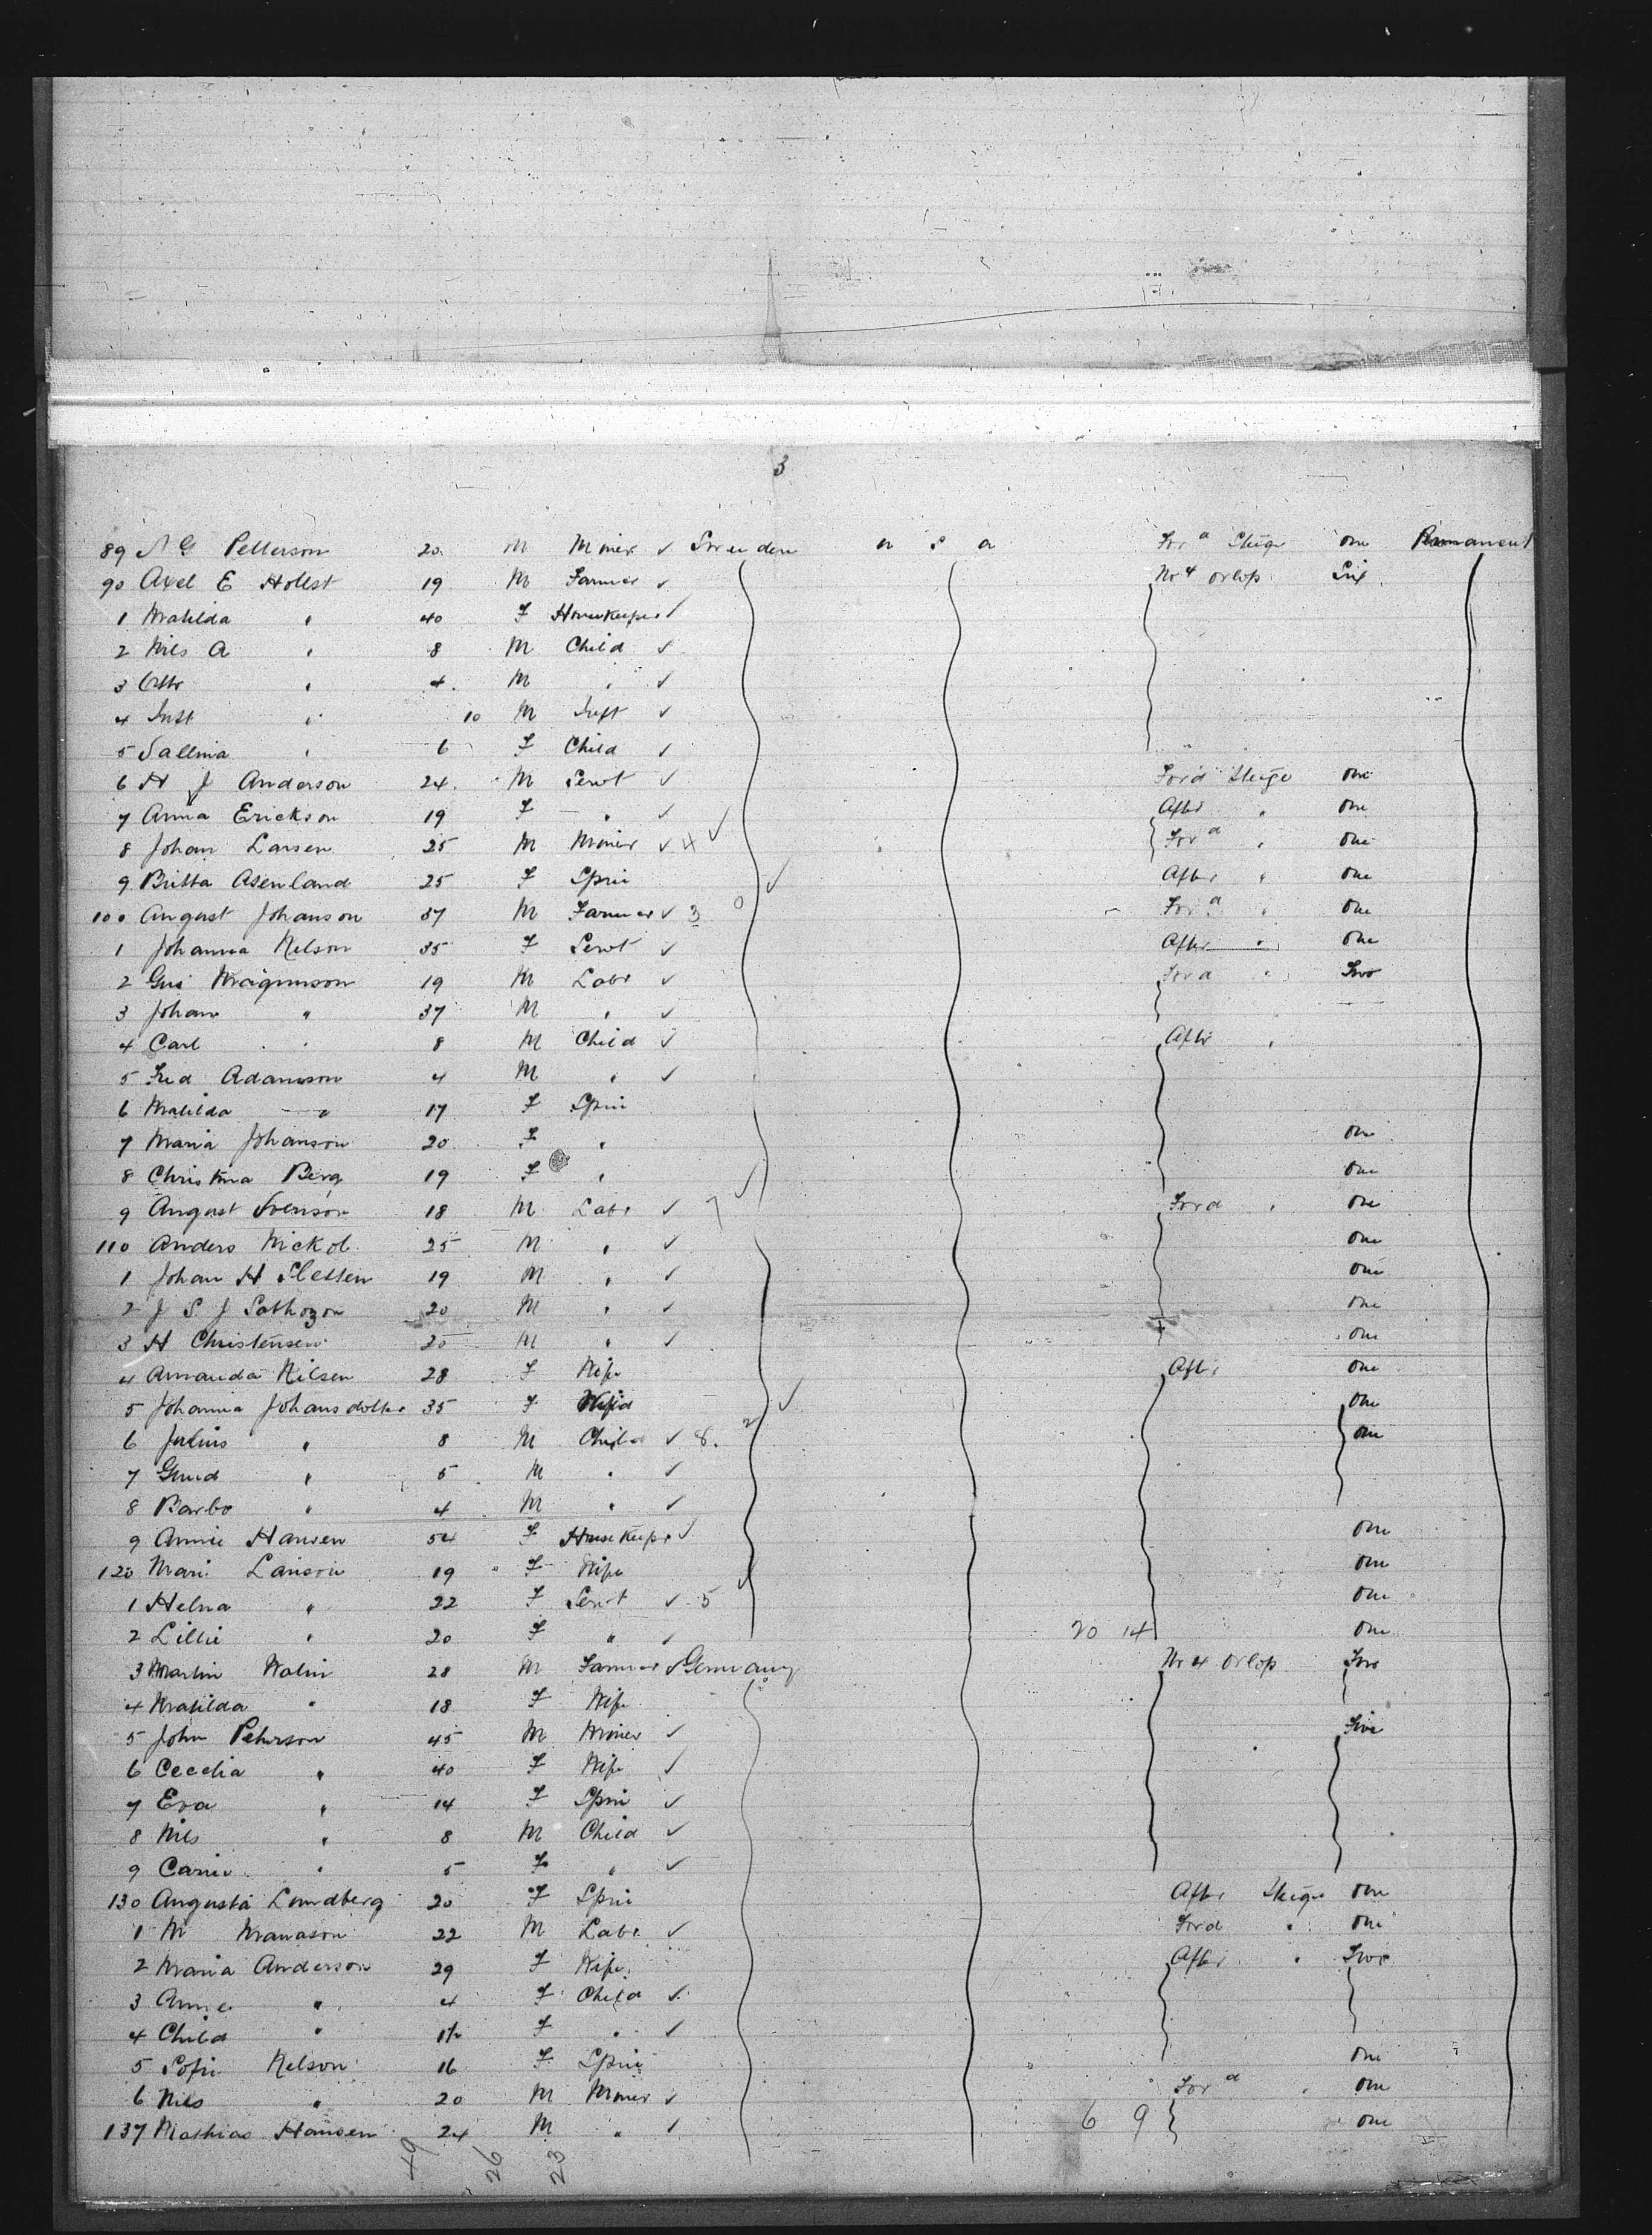 3
89 N G Petterson 20 M Miner ✓ Sweeden U S A For d Stege One Permanent
90 Axel E Holst 19 M Farmer ✓ No 4 Orlop Six
1 Matilda " 40 F Housekeeper ✓
2 Nils A " 8 M Child ✓
3 Otto " 4 M " ✓
4 Just " 10 M Inft ✓
5 Sallina " 6 F Child ✓
6 H J Anderson 24 M Servt ✓ Ford Stege One
7 Anna Erickson 19 F " ✓ After " One
8 Johan Larsen 25 M Miner ✓ 4 ✓ For d " One
9 Britta Asenland 25 F Spin ✓ After " One
100 August Johanson 37 M Farmer ✓ 3 0 For d " One
1 Johanna Nelson 35 F Servt ✓ After " One
2 Gus Magnuson 19 M Labr ✓ Ford " Two
3 Johan " 37 M " ✓
4 Carl " 8 M Child ✓ After "
5 Fred Adamson 4 M " ✓
6 Matilda " 17 F Spin
7 Maria Johanson 20 F " One
8 Christina Berg 19 F " One
9 August Svenson 18 M Labr ✓ 7 ✓ Ford " One
110 Anders Nickol 25 M " ✓ One
1 Johan H Sletten 19 M " ✓ One
2 J S J 20 M " ✓ One
3 H Christensen 25 M " ✓ One
4 Amanda Nilsen 28 F Wife After One
5 Johanna Johansdotter 35 F ✓ One
6 Julius " 8 M Child ✓ 8. 2 One
7 " 5 M " ✓
8 Barbo " 4 M " ✓
9 Annie Hansen 54 F Housekeeper ✓ One
120 Mari Larson 19 F Wife One
1 Helna " 22 F Servt ✓ 5 ✓ One
2 Lillie " 20 F " ✓ 20 14 One
3 Martin Walin 28 M Farmer ✓ Germany No 4 Orlop Two
4 Matilda " 18 F Wife
5 John Peterson 45 M Miner ✓ Five
6 Cecelia " 40 F Wife ✓
7 Eva " 14 F Spin ✓
8 Nils " 8 M Child ✓
9 Carin " 5 F " ✓
130 Augusta Lundberg 20 F Spin After Stege One
1 M Manason 22 M Labr ✓ Ford " One
2 Maria Anderson 29 F Wife After " Two
3 Anna " 4 F Child ✓
4 Child " 1½ F " ✓
5 Sofie Nelson 16 F Spin One
6 Nils " 20 M Miner ✓ For d " One
137 Mathias Hansen 24 M " ✓ 6 9 One
49 26 23